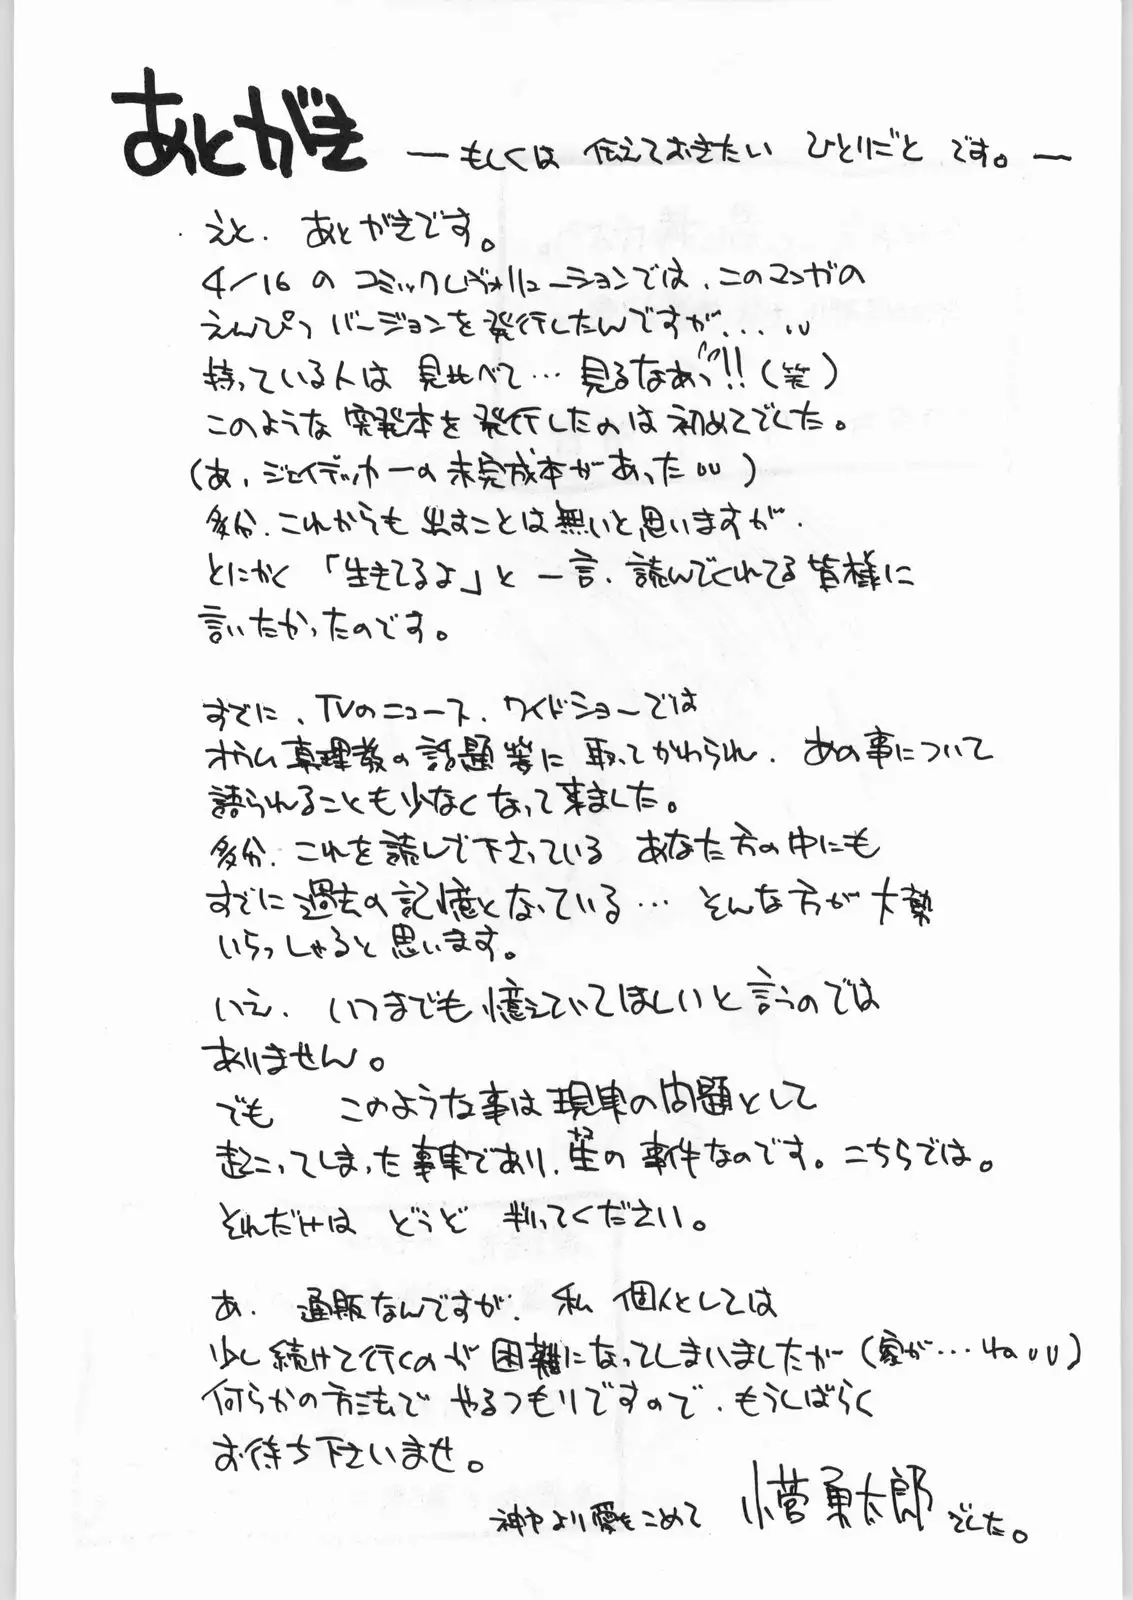 あとがき ―もしくは 伝えておきたい ひとりごと です。―
えと、あとがきです。
4/16の コミックレヴォリューションでは、このマンガの
えんぴつ バージョンを発行したんですが...
持っている人は 見比べて… 見るなあっ!!(笑)
このような 突発本を発行したのは初めてでした。
(あ、ジェイデッカーの未完成本があった)
多分、これからも 出すことは無いと思いますが、
とにかく「生きてるよ」と 一言、読んでくれてる皆様に
言いたかったのです。
すでに、TVのニュース、ワイドショーでは
オウム真理教の話題等に 取ってかわられ、あの事について
語られることも少なくなって来ました。
多分、これを読んで下さっている あなた方の中にも
すでに過去の記憶となっている… そんな方が大勢
いらっしゃると思います。
いえ、いつまでも憶えていてほしいと言うのでは
ありません。
でも このような事は現実の問題として
起こってしまった事実であり、生の事件なのです。こちらでは。
それだけは どうぞ 判ってください。
あ、通販なんですが、私 個人としては
少し続けて行くのが困難になってしまいましたが(家が…ね)
何らかの方法で やるつもりですので、もうしばらく
お待ち下さいませ。
神戸より愛をこめて 小菅勇太郎でした。